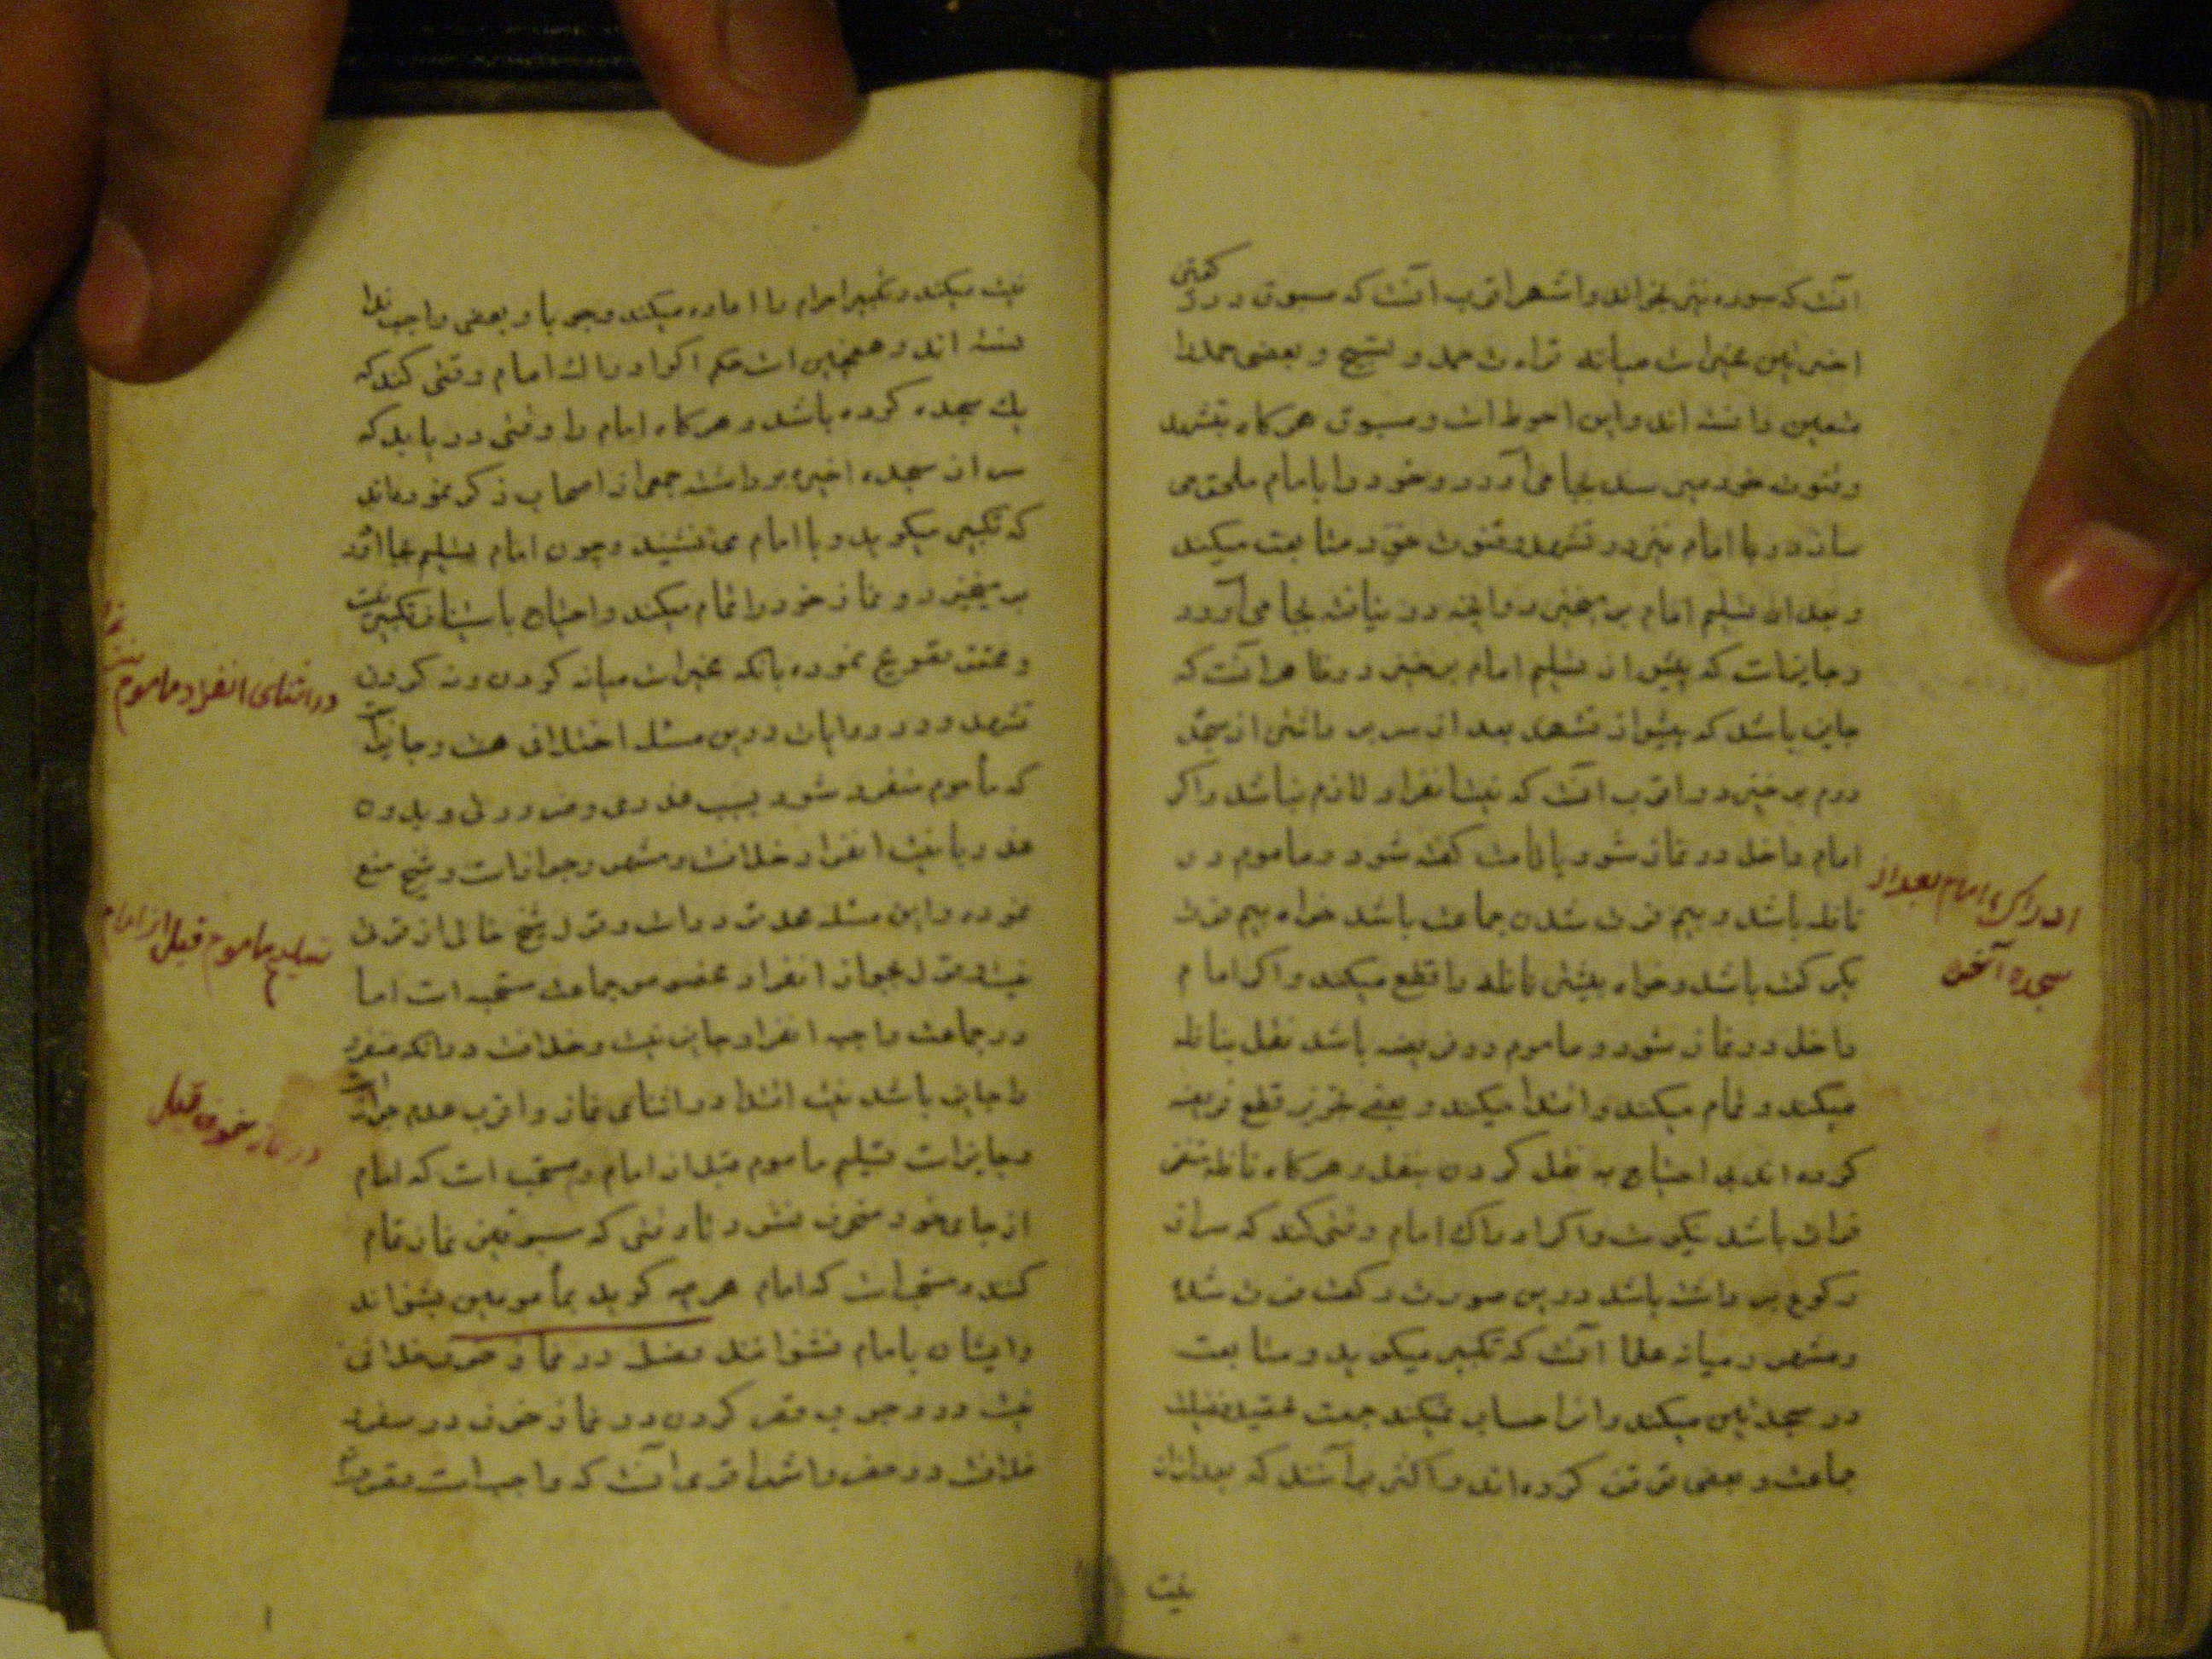 آنست که سوره نیز بخواند و اشهر اقرب آنست که مسبوق در دو رکعتی
اخیرتین مخیر است میانه قراءت حمد و تسبیح و بعضی حمد را
متعین دانسته اند و این احوط است و مسبوق هرکاه بتشهد
و قنوت خود میرسد بجا می آورد و خود را بامام ملحق می
سازد و با امام نیز در تشهد و قنوت خود متابعت میکند
و بعد از تسلیم امام بر میخیزد و آنچه در نیافته بجا می آورد
و جایز است که پیش از تسلیم امام برخیزد و ظاهر آنست که
جایز باشد که پیش از تشهد بعد از سر برداشتن از سجدهٔ
دوم برخیزد و اقرب آنست که نیت انفراد لازم نباشد و اکر
امام داخل در نماز شود یا اقامت کفته شود و ماموم در
نافله باشد و بیم فوت شدن جماعت باشد خواه بیم فوت
یکرکعت باشد و خواه بیشتر نافله را قطع میکند و اکر امام
داخل در نماز شود و ماموم در فریضه باشد نقل بنافله
میکند و تمام میکند و اقتدا میکند و بعضی تجویز قطع فریضه
کرده اند بی احتیاج به نقل کردن بنفل و هرکاه نافله
باشد نیکوست و اکر ادراک امام وقتی کند که سر از
رکوع برداشته باشد درین صورت رکعت فوت شده
و مشهور میانه علما آنست که تکبیر میکوید و متابعت
در سجدتین میکند و آنرا حساب نمیکند جهت
جماعت و بعضی توقف کرده اند و اکثر برآنند که بعد از آن
نیت
ادراک امام بعد از
سجده آخر
نیت میکند و تکبیر احرام را اعاده میکند وجوبا و بعضی واجب ندا
نسته اند و همچنین است حکم اکر ادراک امام وقتی کند که
یک سجده کرده باشد و هرکاه امام را وقتی دریابد که
سر از سجده اخیره برداشته جمعی از اصحاب ذکر نموده اند
که تکبیر میکوید و با امام می نشیند و چون امام تسلیم بجا آورد
بر میخیزد و نماز خود را تمام میکند و احتیاج باستیناف تکبیر نیست
و محقق تصریح نموده بآنکه مخیر است میانه کردن و نه کردن
تشهد و در روایات درین مسئله اختلافی هست و جایز است
که مأموم منفرد شود بسبب عذری و ضرورتی و بدون
عذر با نیت انفراد خلافست و مشهور جواز است و شیخ منع
نموده و این مسئله محل تردد است و قول شیخ خالی از قوتی
نیست و قول بجواز انفراد مخصوص جماعت مستحبه است اما
در جماعت واجبه انفراد جایز نیست و خلافست در آنکه منفرد
را جایز باشد نیت اقتدا در اثنای نماز و اقرب عدم جواز است
و جایز است تسلیم ماموم قبل از امام و مستحب است که امام
از جای خود منحرف نشود تا وقتی که مسبوقین نماز تمام
کنند و مستحب است که امام هرچه کوید بمأمومین بشنواند
و ایشان بامام نشنوانند فصل در نماز خوف خلافی
نیست در وجوب قصر کردن در نماز خوف در سفر و
خلافست در حضر و اشهر اقوی آنست که واجب است قصر
در اثنای انفراد ماموم
تسلیم ماموم قبل از امام
در نماز خوف